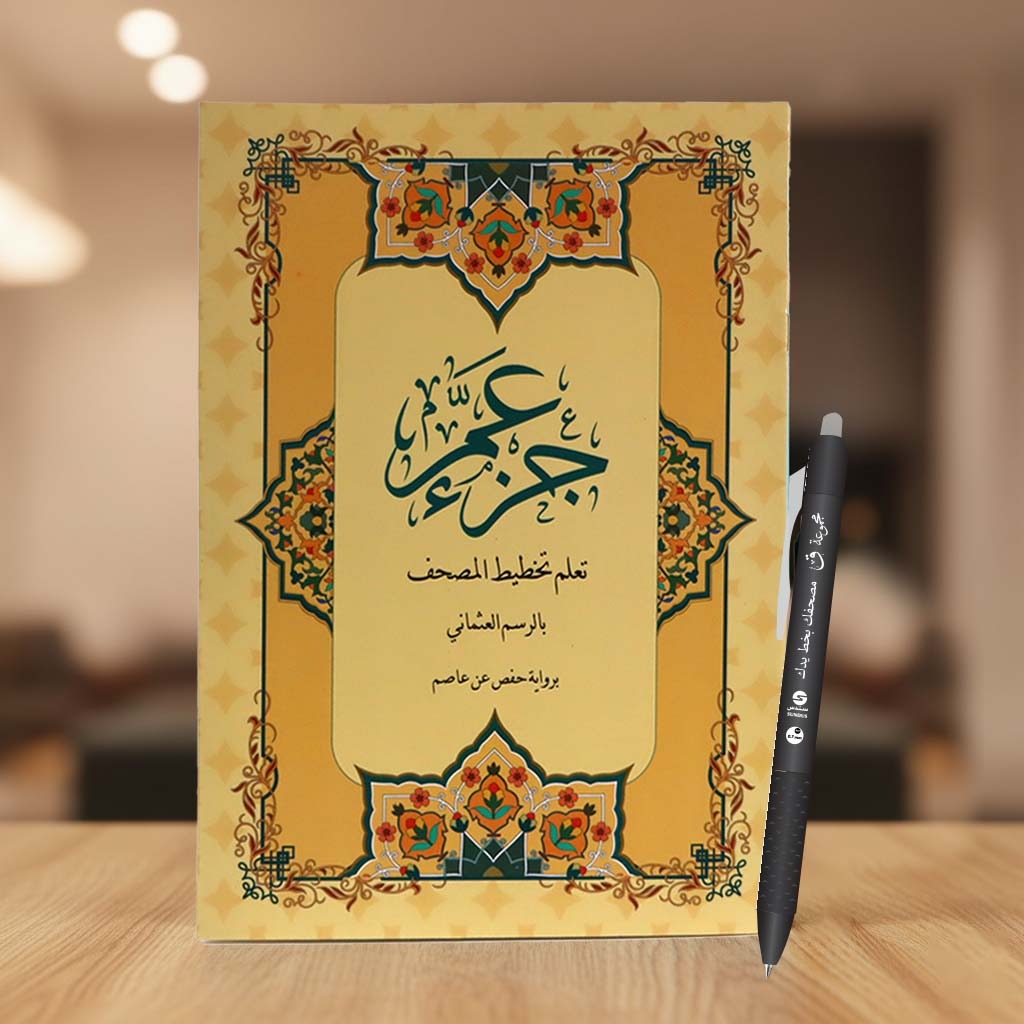 جزء عمّ
تعلم تخطيط المصحف
بالرسم العثماني
برواية حفص عن عاصم
مجموعة ق مصحفك بخط يدك
سندس
SUNDUS